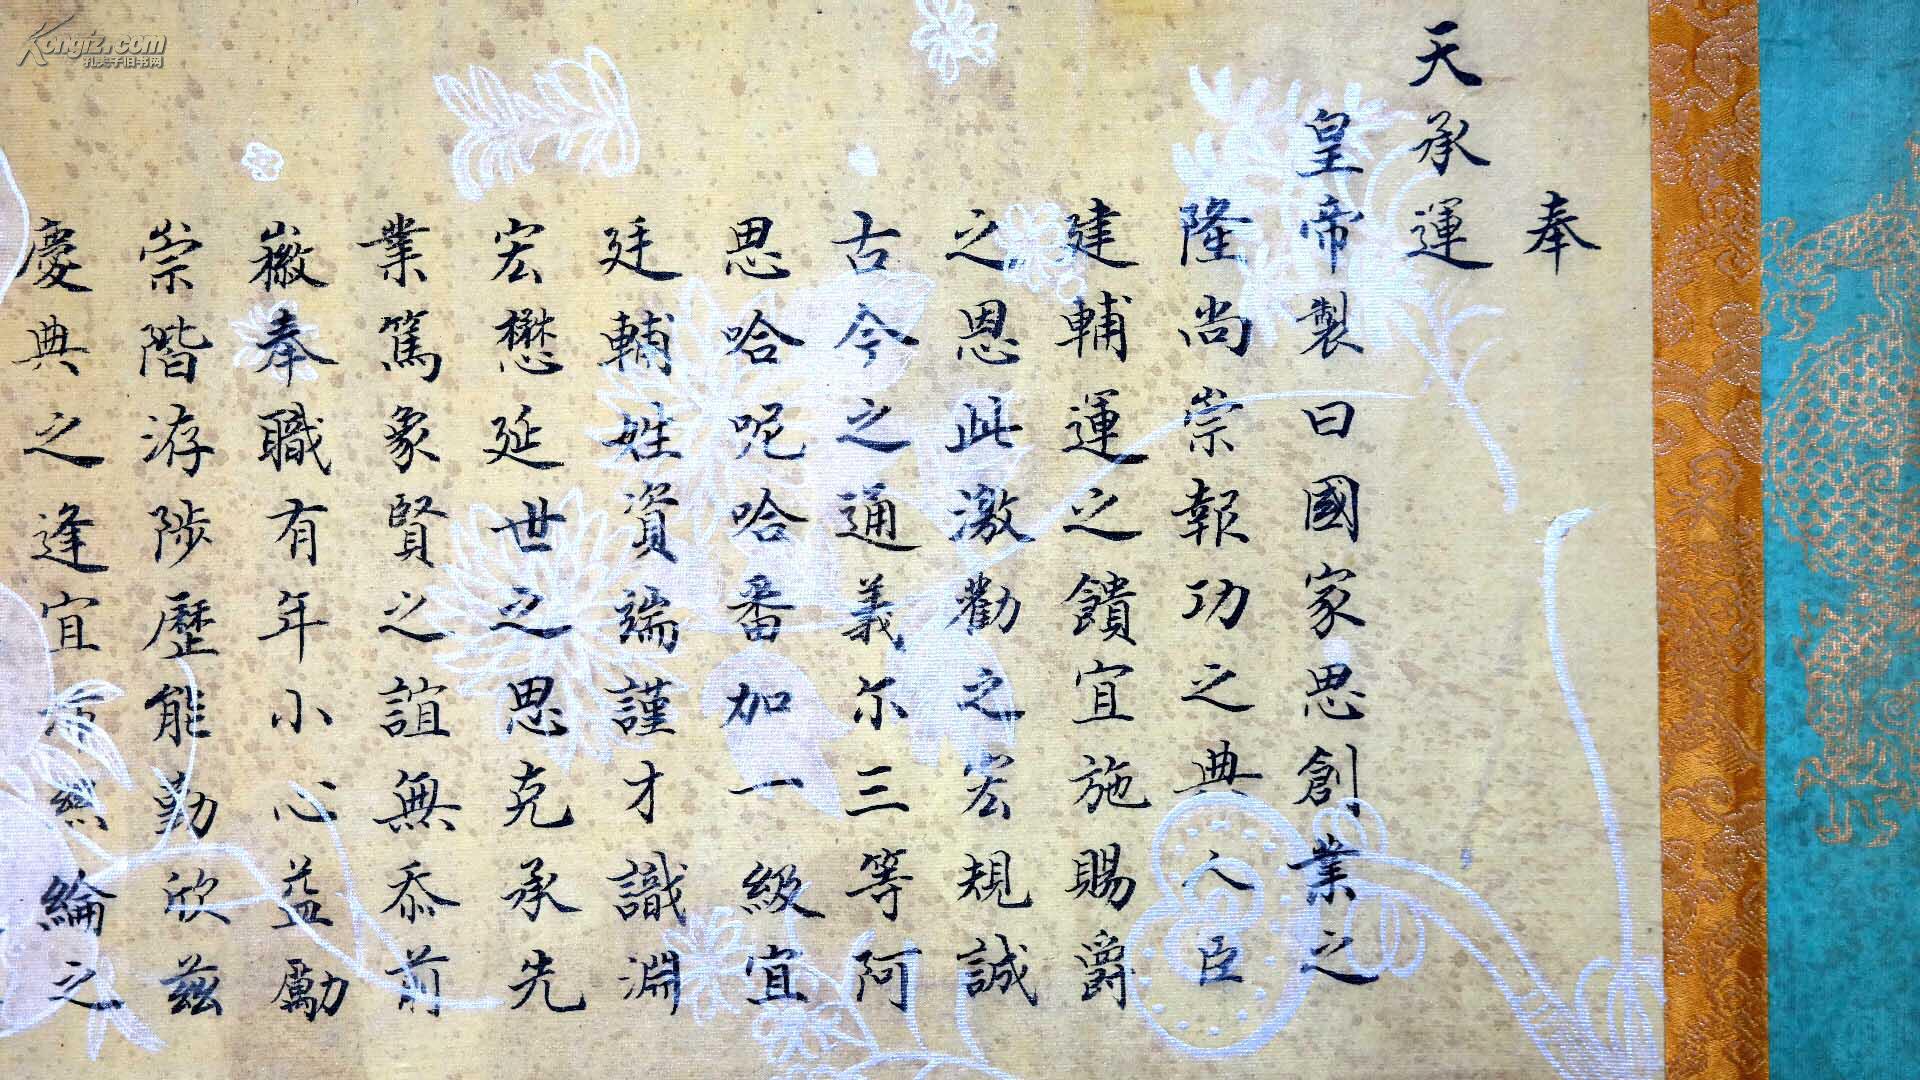 奉
天承運
皇帝製曰國家思創業之
隆尚崇報功之典人臣
建輔運之饋宜施賜爵
之恩此激勸之宏規誠
古今之通義尔三等阿
思哈呢哈番加一級宜
廷輔姓資端謹才識淵
宏懋延世之思克承先
業篤象賢之誼無忝前
徽奉職有年小心益勵
崇階洊陟歷能勤欣茲
慶典之逢宜布絲綸之
Kongfz.com
孔夫子旧书网